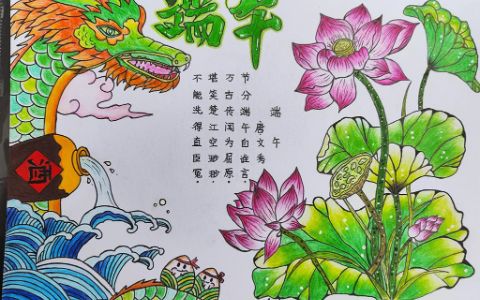 端午
端午
唐文秀
节分端午自谁言，
万古传闻为屈原。
堪笑楚江空渺渺，
不能洗得直臣冤。